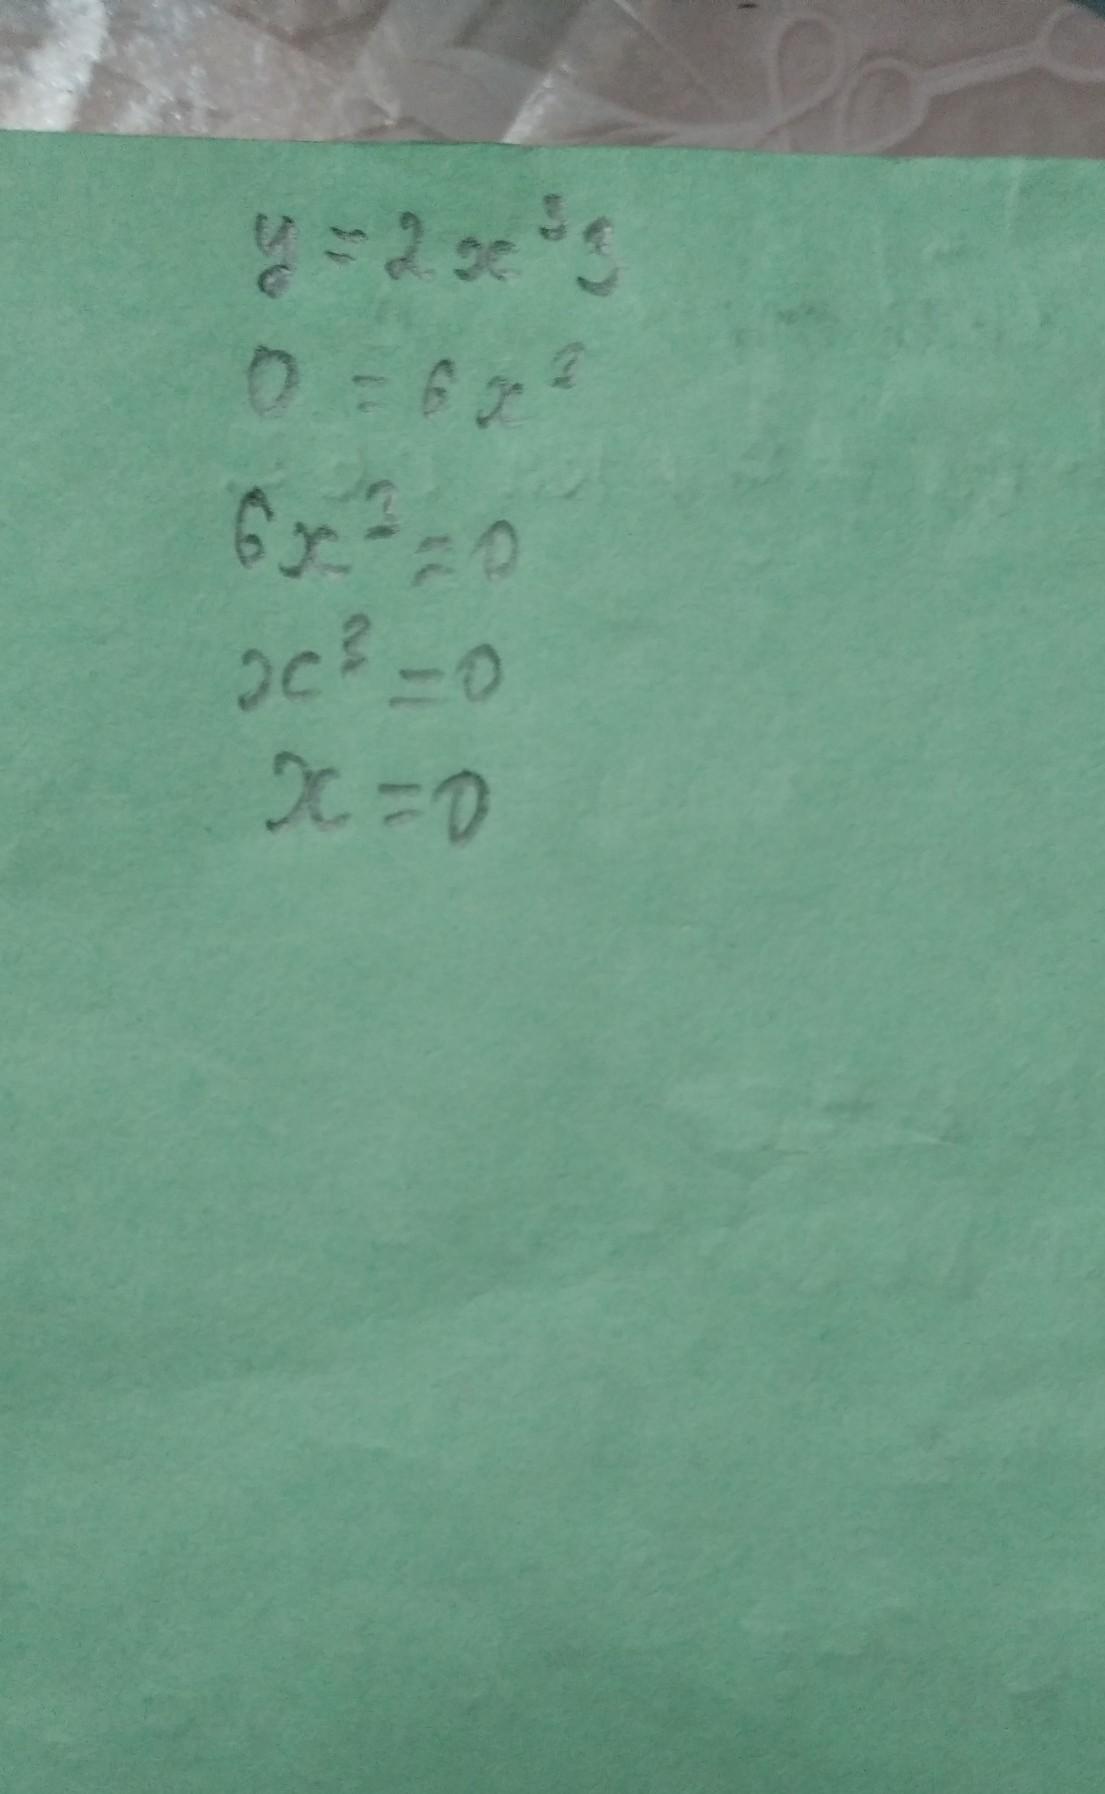 y = 2x³3
0 = 6x³
6x³ = 0
x³ = 0
x = 0